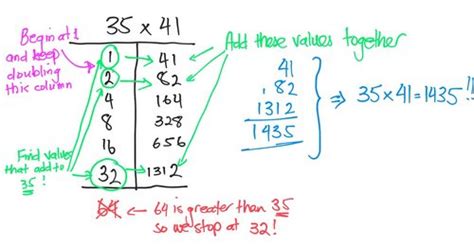 35 x 41
Begin at 1
and keep
doubling
this column
1 41
2 82
4 164
8 328
16 656
32 1312
Find values
that add to
35 !
64 ← 64 is greater than 35
so we stop at 32!
Add these values together
41
82
1312
1435
⇒ 35x41=1435!!